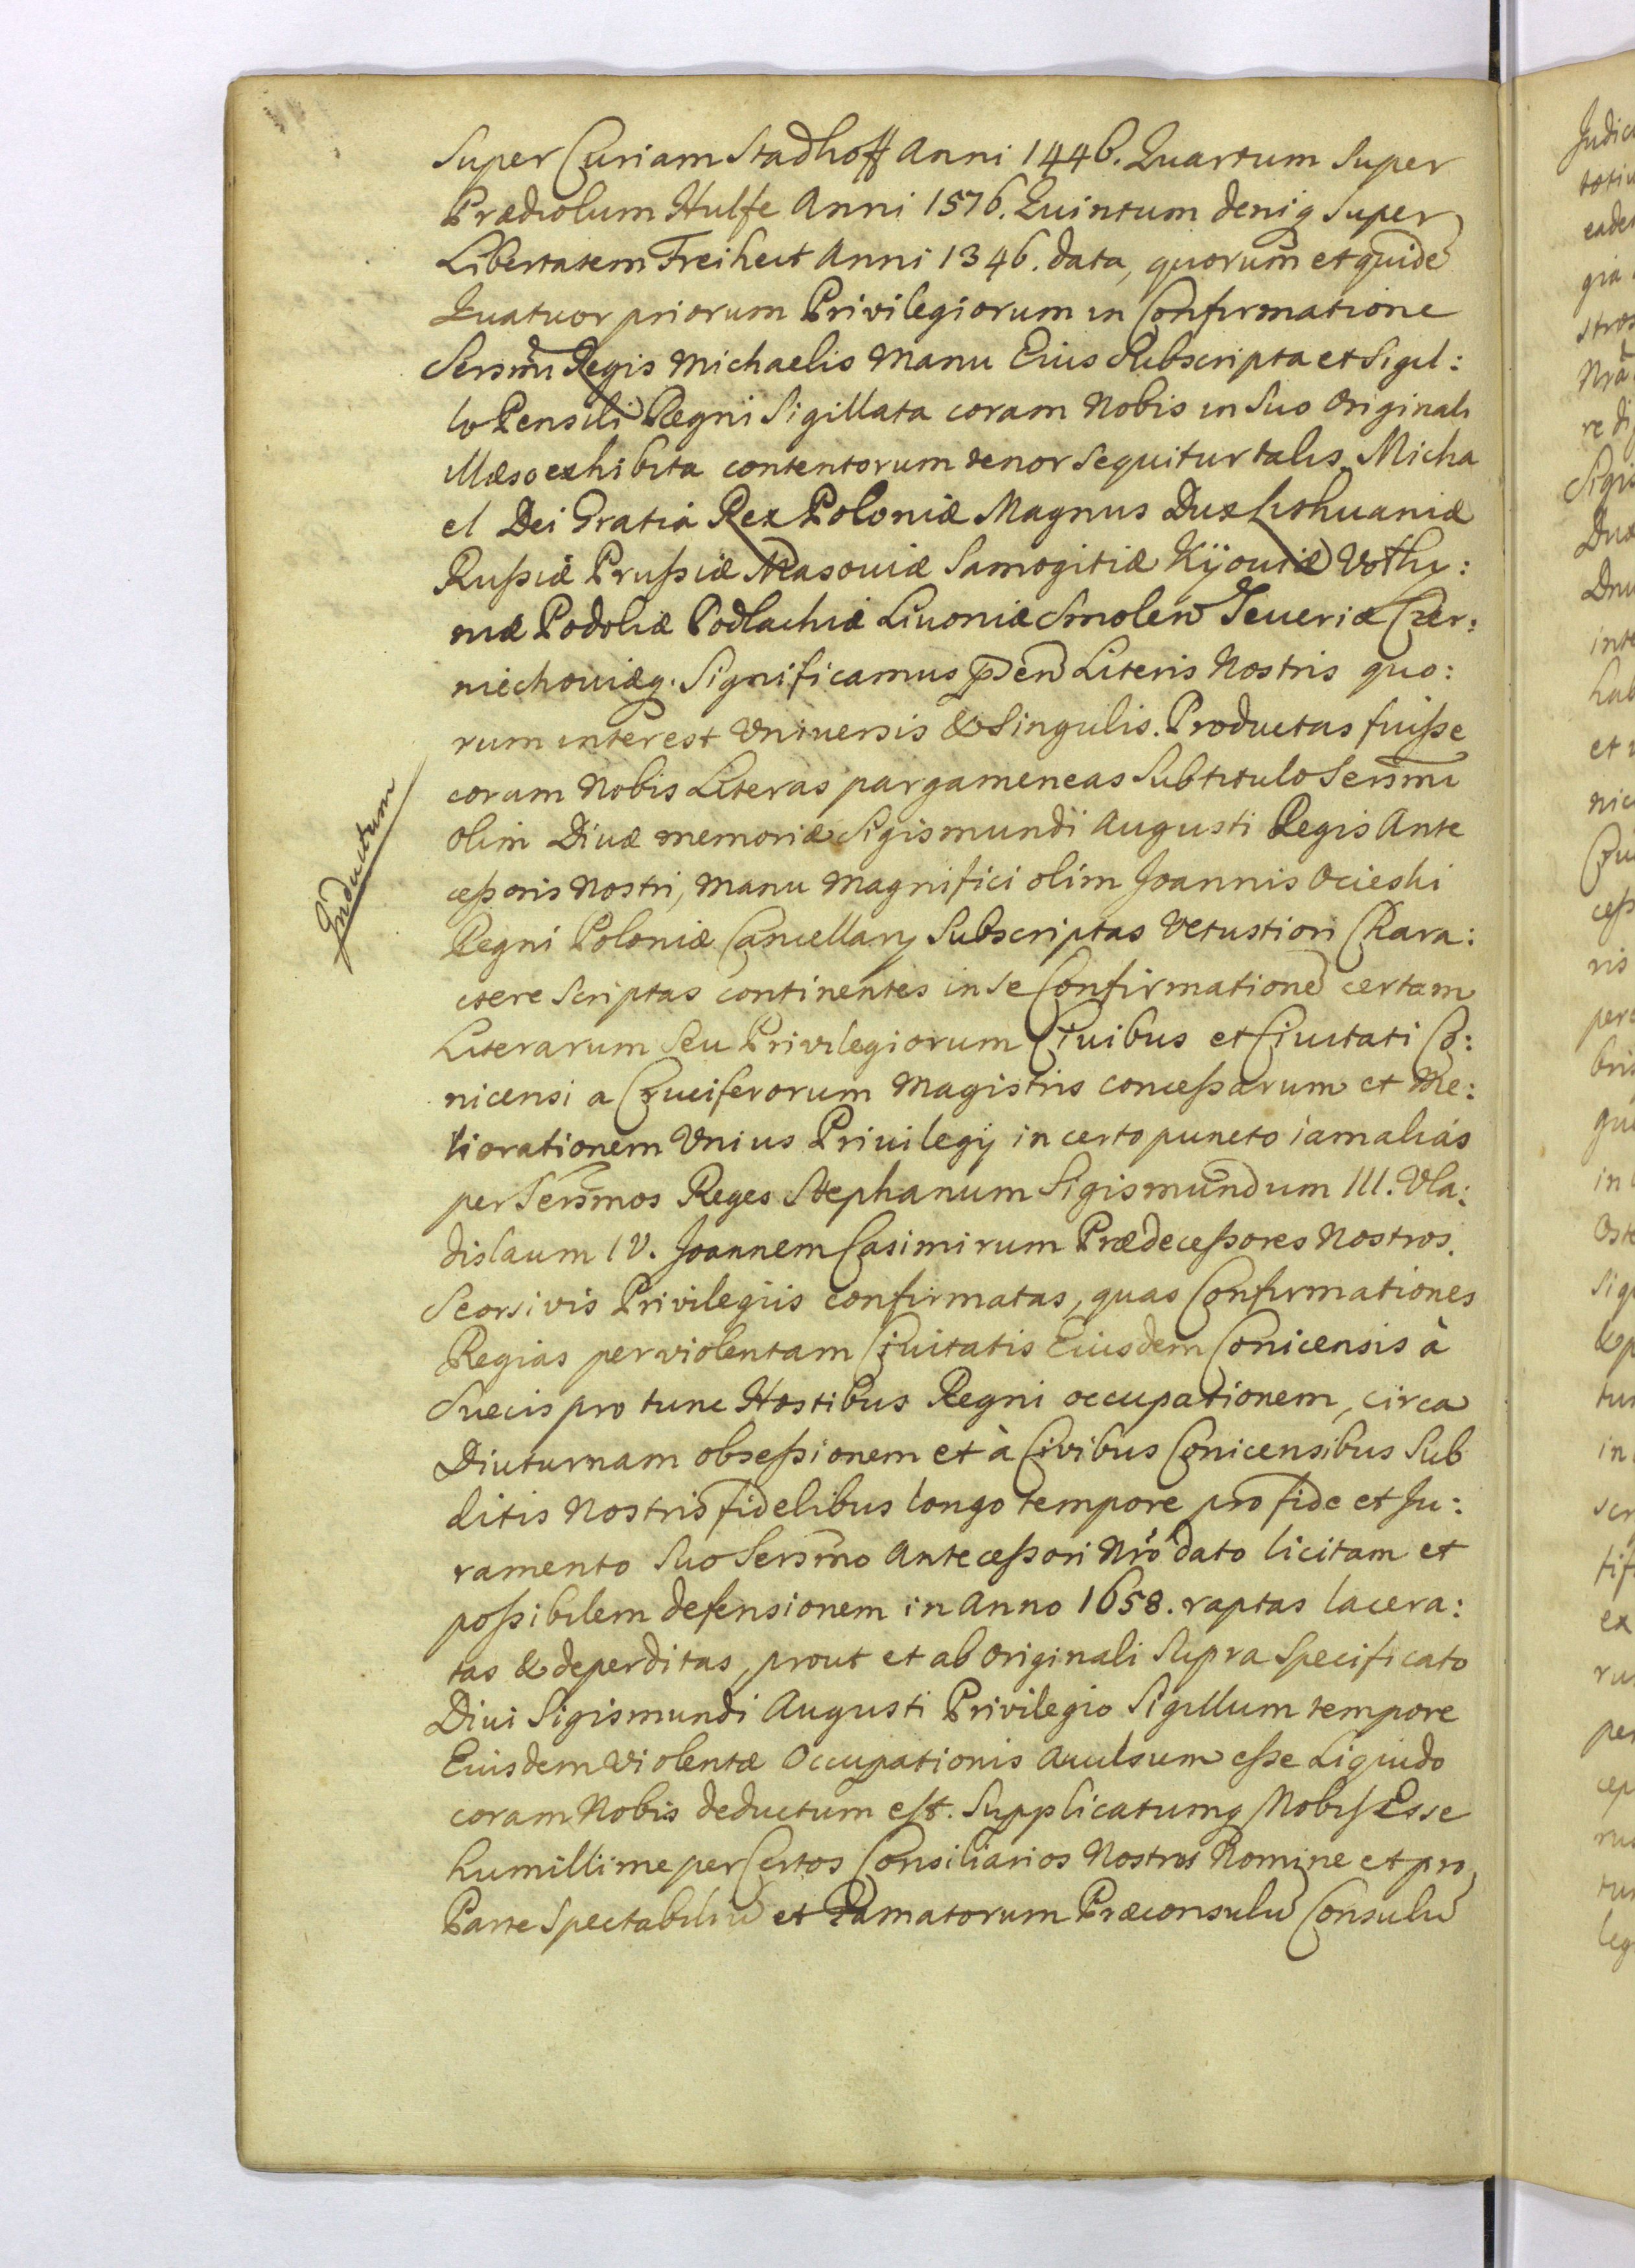 Super Curiam Stadhoff Anni 1446. Quartum Super
Prædiolum Hulfe Anni 1576. Quintum deniq Super
Libertatem Freiheit Anni 1346. data, quorum et quidē
Quatuor priorum Privilegiorum in Confirmatione
Sersm̄i Regis Michaelis Manu Eius Subscripta et Sigil:
lo Pensili Regni Sigillata coram Nobis in Suo Originali
illæso exhibita contentorum tenor sequitur talis. Micha
el Dei Gratia Rex Poloniæ Magnus Dux Lithuaniæ
Rußiæ Prußiæ Masouiæ Samogitiæ Kijouiæ Volhy:
niæ Podoliæ Podlachiæ Liuoniæ Smolen Seueriæ Czer:
niechouiæq. Significamus p̄sen Literis Nostris quo:
rum interest Vniuersis & Singulis. Productas fuiße
coram Nobis Literas pargameneas Sub titulo Sersm̄i
olim Diuæ memoriæ Sigismundi Augusti Regis Ante
ceßoris Nostri, Manu Magnifici olim Joannis Ocieski
Regni Poloniæ Cancellarij Subscriptas Vetustiori Chara:
ctere Scriptas continentes in se Confirmationē certam
Literarum Seu Privilegiorum Ciuibus et Ciuitati Co:
nicensi a Cruciferorum Magistris conceßarum et Me:
liorationem Vnius Priuilegij in certo puncto iam aliàs
per Sersm̄os Reges Stephanum Sigismundum III. Vla:
dislaum IV. Joannem Casimirum Prædeceßores Nostros.
Seorsivis Privilegiis confirmatas, quas Confirmationes
Regias per violentam Ciuitatis Eiusdem Conicensis à
Suecis pro tunc Hostibus Regni occupationem, circa
Diuturnam obseßionem et à Civibus Conicensibus Sub
ditis Nostris fidelibus longo tempore pro fide et Ju:
ramento Suo Sersm̄o Anteceßori Nr̄o dato licitam et
poßibilem defensionem in Anno 1658. raptas lacera:
tas & deperditas, prout et ab Originali Supra Specificato
Diui Sigismundi Augusti Privilegio Sigillum tempore
Eiusdem Violentæ Occupationis Auulsum eße Liquido
coram Nobis deductum est. Supplicatumq Nobis Esse
humillime per Certos Consiliarios Nostros Nomine et pro
Parte Spectabiliū et Famatorum Præconsulū Consulū
Inductum